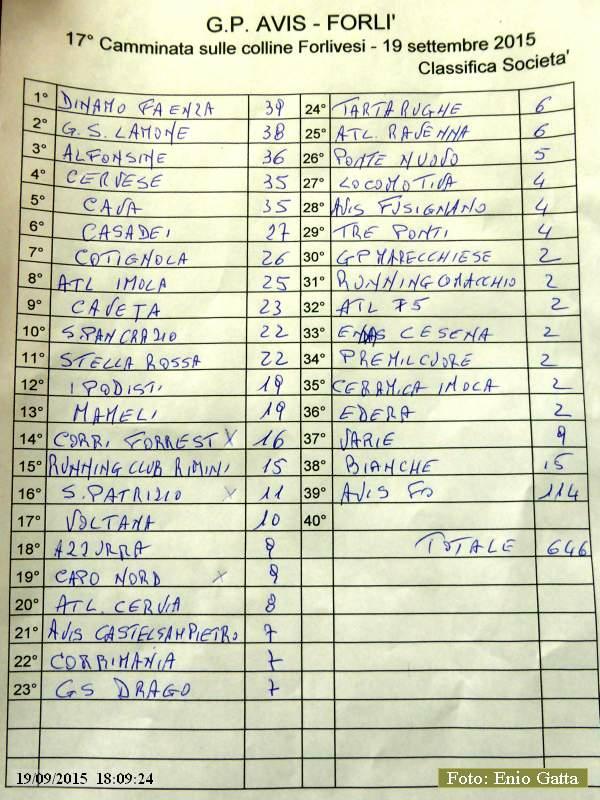 G.P. AVIS - FORLI'
17° Camminata sulle colline Forlivesi - 19 settembre 2015
Classifica Societa'
1° DINAMO FAENZA 39
2° G.S. LAMONE 38
3° ALFONSINE 36
4° CERVESE 35
5° CAVA 35
6° CASADEI 27
7° COTIGNOLA 26
8° ATL IMOLA 25
9° CAVETA 23
10° S.PANCRAZIO 22
11° STELLA ROSSA 22
12° I PODISTI 19
13° MAMELI 19
14° CORRI FORREST X 16
15° RUNNING CLUB RIMINI 15
16° S.PATRIZIO X 11
17° VOLTANA 10
18° AZZURRA 9
19° CAPO NORD X 9
20° ATL. CERVIA 8
21° AVIS CASTELSAMPIETRO 7
22° CORRIMANIA 7
23° GS DRAGO 7
24° TARTARUGHE 6
25° ATL. RAVENNA 6
26° PONTE NUOVO 5
27° LOCOMOTIVA 4
28° AVIS FUSIGNANO 4
29° TRE PONTI 4
30° GP MARECCHIESE 2
31° RUNNING COMACCHIO 2
32° ATL 75 2
33° ENDAS CESENA 2
34° PREMILCUORE 2
35° CERAMICA IMOLA 2
36° EDERA 2
37° VARIE 9
38° BIANCHE 15
39° AVIS FO 114
40°
TOTALE 646
19/09/2015 18:09:24
Foto: Enio Gatta